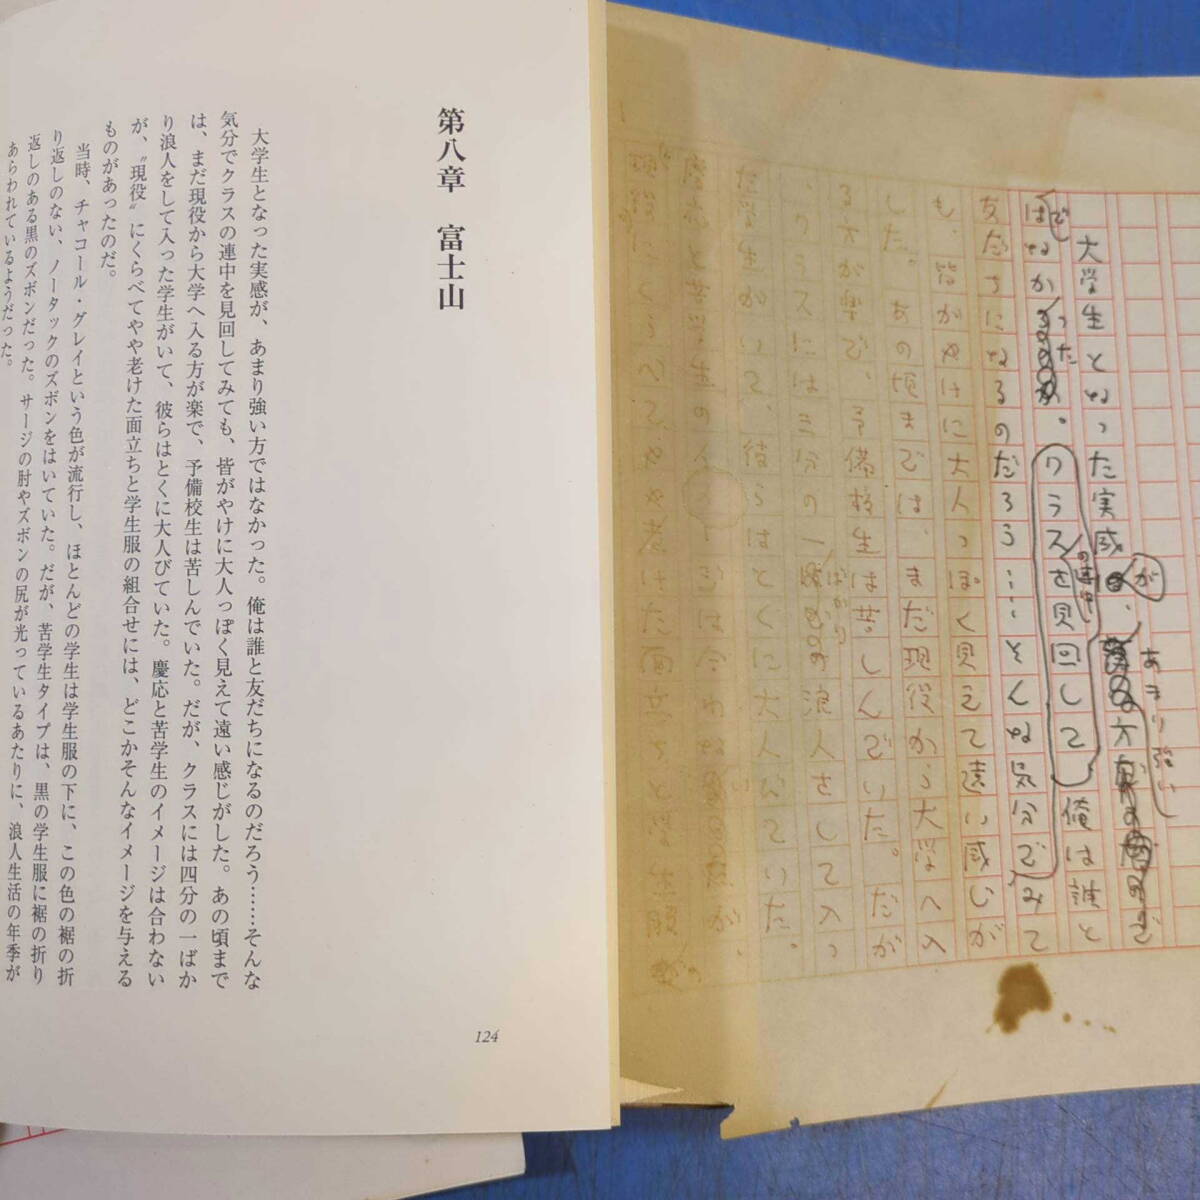 第八章　富士山
大学生となった実感が、あまり強い方ではなかった。俺は誰と友だちになるのだろう……そんな
気分でクラスの連中を見回してみても、皆がやけに大人っぽく見えて遠い感じがした。あの頃まで
は、まだ現役から大学へ入る方が楽で、予備校生は苦しんでいた。だが、クラスには四分の一ばか
り浪人をして入った学生がいて、彼らはとくに大人びていた。慶応と苦学生のイメージは合わない
が、〝現役〟にくらべてやや老けた面立ちと学生服の組合せには、どこかそんなイメージを与える
ものがあったのだ。
当時、チャコール・グレイという色が流行し、ほとんどの学生は学生服の下に、この色の裾の折
り返しのない、ノータックのズボンをはいていた。だが、苦学生タイプは、黒の学生服に裾の折り
返しのある黒のズボンだった。サージの肘やズボンの尻が光っているあたりに、浪人生活の年季が
あらわれているようだった。
124
あまり強い
大学生となった実感が、方
ではなかった。クラスの連中を見回して俺は誰と
友だちになるのだろう……そんな気分でみて
も、皆がやけに大人っぽく見えて遠い感じが
した。あの頃までは、まだ現役から大学へ入
る方が楽で、予備校生は苦しんでいた。だが
、クラスには三分の一ばかりの浪人をして入っ
た学生がいて、彼らはとくに大人びていた。
慶応と苦学生のイメージは合わないが、
現役にくらべてやや老けた面立ちと学生服